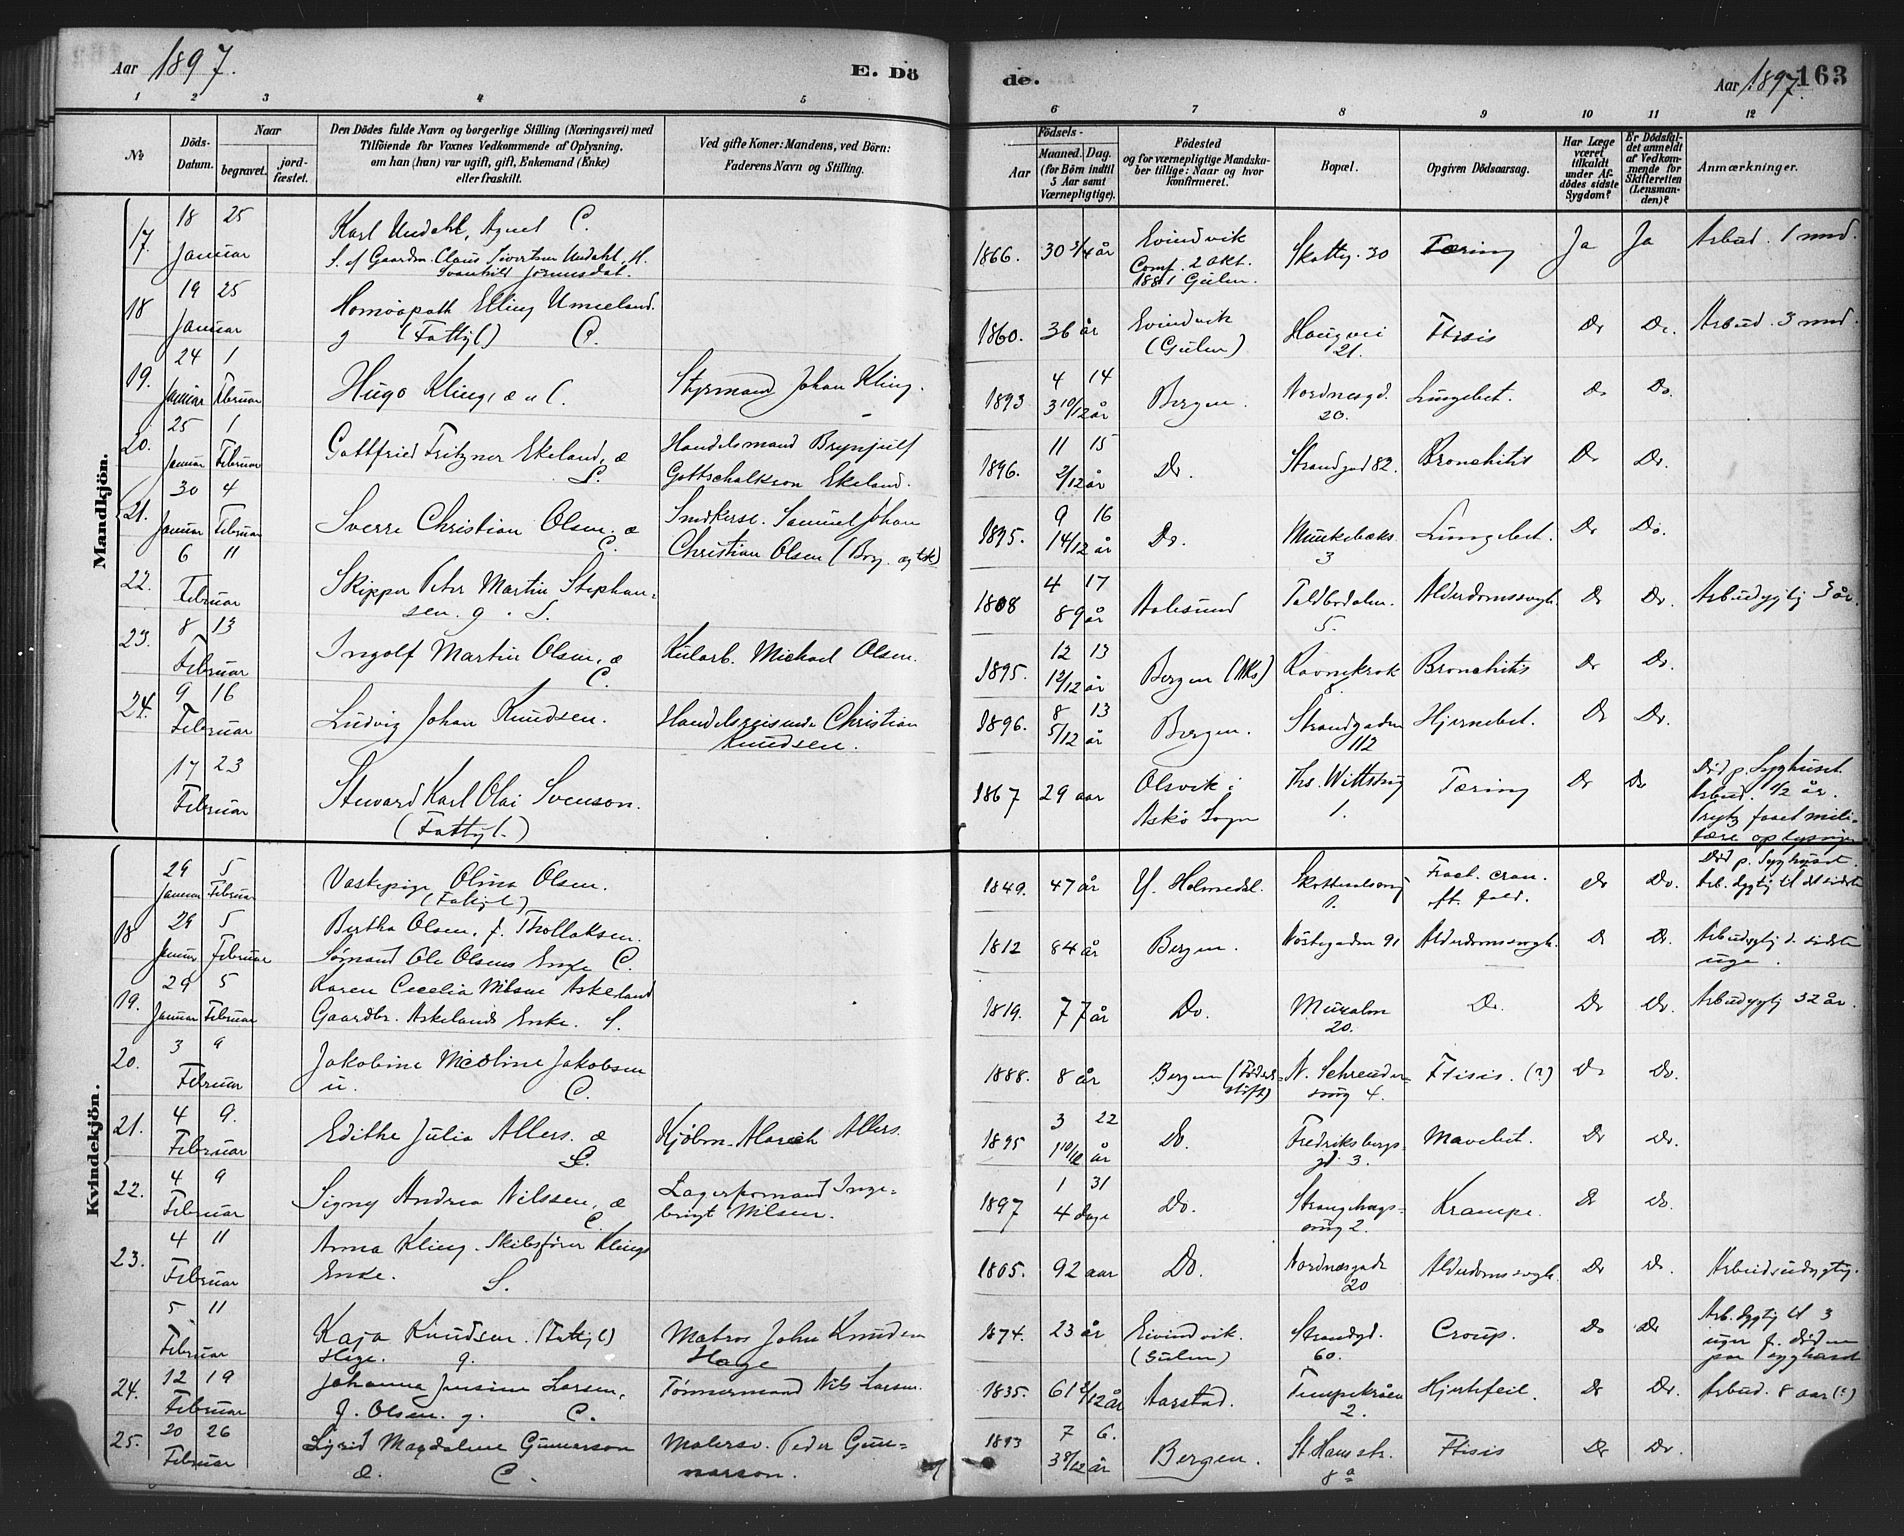 Aar 1897. E. Dö
de. Aar 1897. 163
1 2 3 4 5 6 7 8 9 10 11 12
No
Döds-
Datum.
Naar
begravet.
jord-
fæstet.
Den Dödes fulde Navn og borgerlige Stilling (Næringsvei) med
Tilföiende for Voxnes Vedkommende af Oplysning,
om han (hun) var ugift, gift, Enkemand (Enke)
eller fraskilt.
Ved gifte Koner: Mandens, ved Börn:
Faderens Navn og Stilling.
Födsels-
Aar
Maaned. Dag.
(for Börn indtil
5 Aar samt
Værnepligtige).
Födested
og for værnepligtige Mandska-
ber tillige: Naar og hvor
konfirmeret.
Bopæl.
Opgiven Dödsaarsag.
Har Læge
været
tilkaldt
under Af-
dödes sidste
Sygdom?
Er Dödsfal-
det anmeldt
af Vedkom-
mende for
Skifteretten
(Lensman-
den)?
Anmærkninger.
Mandkjön.
17. 18 Januar 25 Karl Undahl, Agent C. 1866. 30 3/4 år Evindvik Skotteg. 30 Tæring Ja Ja Arbud. 1 md.
S. af Gaardm. Claus Sivertsen Undahl, H. Comf. 2 Okt.
Svanhild Jönnesdat. 1881 Gulen.
18 19 Januar 25 Homöopath Elling Umeland. 1860. 36 år Evindvik Haugvei Ftisis Do Do. Arbud. 3 md.
g (Fattyl) C. (Gulen) 21.
19. 24 Januar 1 Februar Hugo Kling, æ u C. Styrmand Johan Kling. 1893 4 14 3 10/12 år Bergen. Nordnesgd. 20. Lungebet. Do Do.
20. 25 Januar 1 Februar Gottfried Fritzner Ekeland, æ Handelsmand Brynjulf 1896. 11 15 2/12 år Do. Strandgad 82. Bronchitis Do Do.
S. Gottschalkson Ekeland.
21. 30 Januar 4 Februar Sverre Christian Olsen. æ Smedkerse. Samuel Johan 1895. 9 16 14/12 år Do. Munkebæks. 3 Lungebet. Do Do.
C. Christian Olsen
22. 6 Februar 11 Skipper Peter Martin Stephan- 1808 4 17 89 år Aalesund Toldbodalm. 5. Alderdomssvagh. Do Do. Arbudygtig 3 år.
sen. g. S.
23. 8 Februar 13 Ingolf Martin Olsen, æ Kularb. Michael Olsen. 1895. 12 13 12/12 år Bergen Ravnekrok 8. Bronchitis Do Do.
C.
24. 9 Februar 16 Ludvig Johan Knudsen. Handelsreisende Christian 1896. 8 13 5/12 år Bergen. Strandgaden 112 Hjernebet. Do Do.
Knudsen.
17 Februar 23 Steward Karl Olai Svenson. 1867 29 aar Olsvik i Ths. Wittstrug Tæring Do Do Död p. Syghuset.
(Fattyl.) Askö Sogn 1. Arbud. 1/2 år.
Kvindekjön.
29 Januar 5 Februar Vaskepige Olina Olsen. 1849. 47 år Y. Holmedal. 1. Fract. cran. Do Do. Död p. Syghuset.
(Fattyl)
18 29 Januar 5 Februar Bertha Olsen, f. Thollaksen. 1812 84 år Bergen. Nöstegaden 91 Alderdomssvagh. Do Do. Arbudygtig d. sidste
Sömand Ole Olsens Enke C. uge.
19. 29 Januar 5 Februar Karen Cecelia Nilsine Askeland 1819. 77 år Do. Muralm 20. Do. Do Do Arbudygtig 32 år.
Gaardbr. Askelands Enke. S.
20. 3 Februar 9 Jakobine Nicoline Jakobsen 1888. 8 år Bergen (Födsels- N. Schreuder- Ftisis. (?) Do Do.
u. C. stift) smug 4.
21. 4 Februar 9. Edithe Julia Allers. æ Kjöbm. Alarich Allers. 1895 3 22 1 10/12 år Do. Fredriksbergs- Mavebet. Do Do.
S. gd. 3.
22. 4 Februar 9 Signy Andrea Nilssen, æ Lagerformand Inge- 1897 1 31 4 dage Do. Strangehags- Krampe. Do Do.
C. brigt Nilsen. smug 2.
23. 4 Februar 11 Anna Kling. Skibsförer Klings 1805. 92 aar Do. Nordnæsgade Alderdomssvagh. Do Do. Arbeidsudygtig.
Enke. S. 20
5 Februar 11 Kaja Knudsen. (Fattyl) Matros John Knudsen 1874. 23 år Eivindvik. Strandgd. Croup. Do Do Arb. dygtig til 3
Hage. g. Hage (Gulen) 60. uger f. döden
paa syghuset
24. 12 Februar 19 Johanne Jensine Larsen, Tömmermand Nils Larsen. 1835. 61 2/12 år Aarstad. Tempekråen Hjertefeil. Do Do. Arbud. 8 aar (?)
f. Olsen. g. C. 2.
25. 20 Februar 26 Sigrid Magdalene Gunnarson Malersv. Peder Gun- 1893 7 6. 3 8/12 år Bergen. St. Hansstr. Ftisis Do Do.
æ. C. narson. 8a